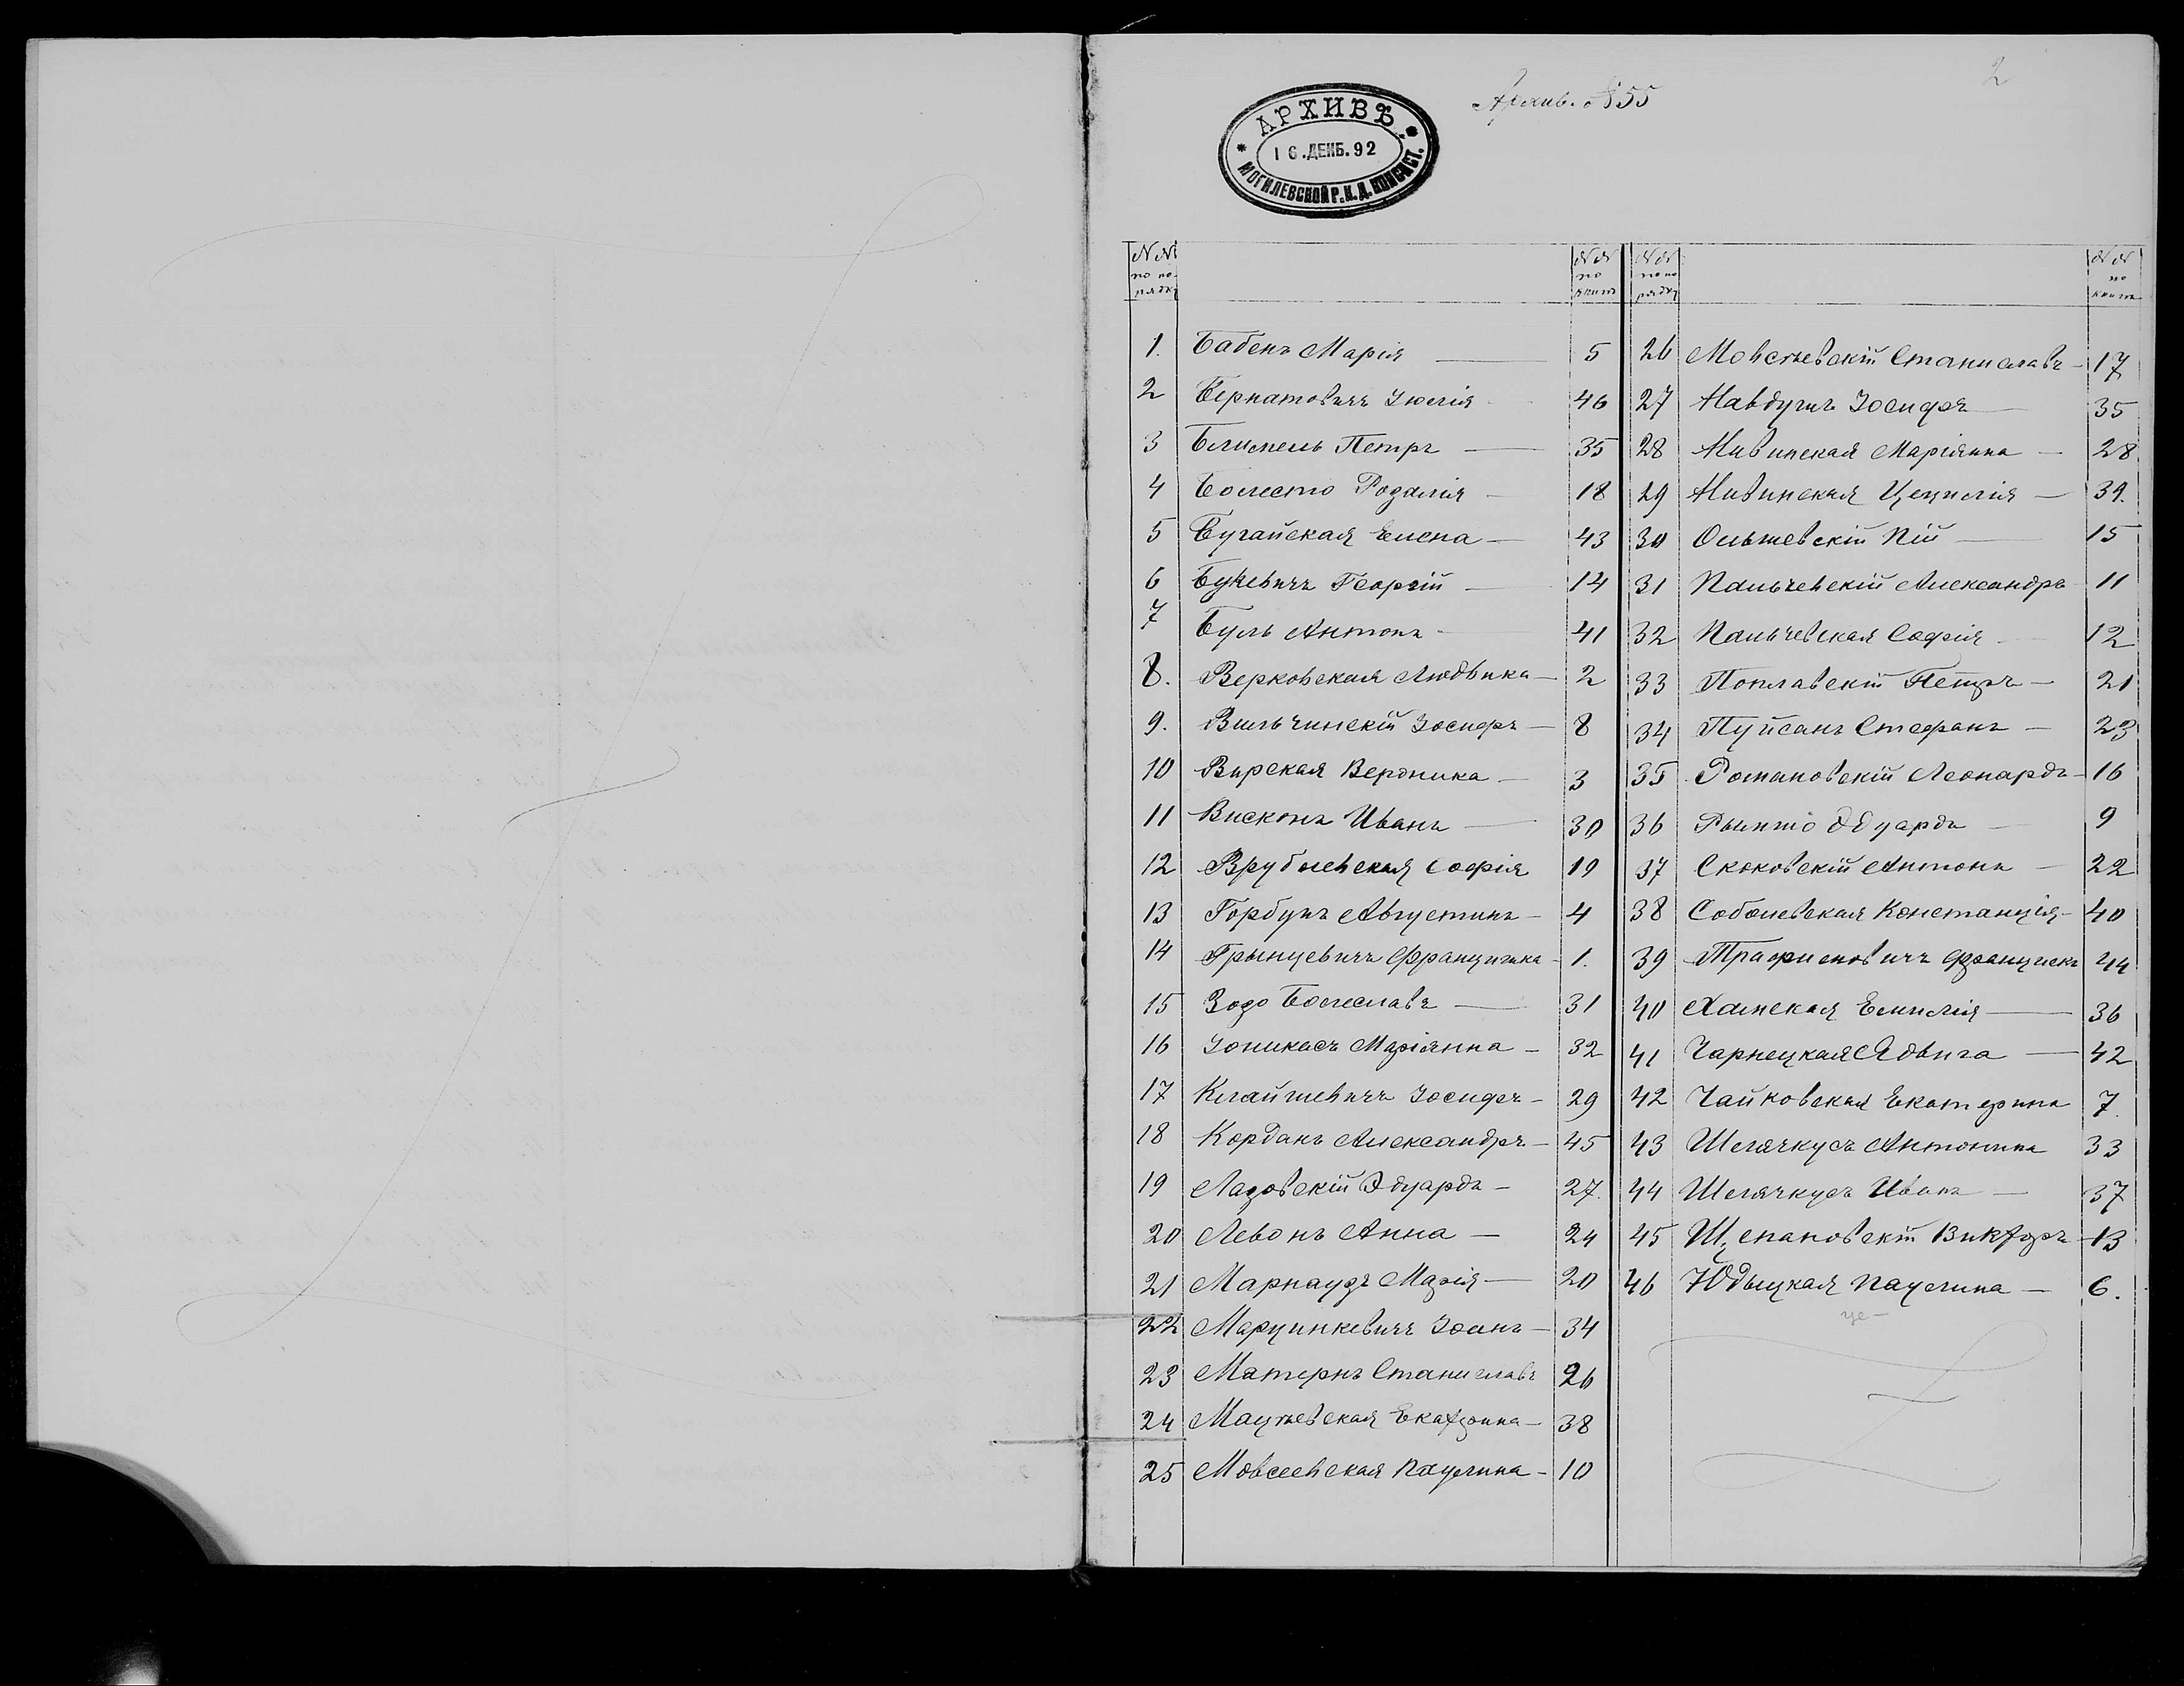 2
Архив. №55
АРХИВЪ.
16.ДЕКБ.92
МОГИЛЕВСКОЙ Р.К.Д.КОНСИСТ.
№№ по порядку
№№ по книгѣ
№№ по порядку
№№ по книгѣ
1. Бабенъ Марія 5
2 Бернатовичъ Юлія 46
3 Блимель Петръ 35
4 Болесто Розалія 18
5 Бугайская Елена 43
6 Букевичъ Георгій 14
7 Буль Антонъ 41
8. Верковская Людвика 2
9. Вильчинскій Іосифъ 8
10 Вирская Вероника 3
11 Висконъ Иванъ 30
12 Врублевская Софія 19
13 Горбунъ Августинъ 4
14 Грынцевичъ Францишка 1.
15 Зодо Болеславъ 31
16 Іоникасъ Маріянна 32
17 Клайшевичъ Іосифъ 29
18 Корданъ Александръ 45
19 Лазовскій Эдуардъ 27.
20 Левонъ Анна 24
21 Марнаузъ Марія 20
22 Марцинкевичъ Іоанъ 34
23 Матернъ Станиславъ 26
24 Мацѣевская Екатерина 38
25 Мовсеевская Паулина 10
26 Мовсѣевскій Станиславъ 17
27 Навдунъ Іосифъ 35
28 Нивинская Маріянна 28
29 Нивинская Цецилія 39.
30 Ольшевскій Пій 15
31 Пальчевскій Александръ 11
32 Пальчевская Софія 12
33 Поплавскій Петръ 21
34 Пуйсанъ Стефанъ 23
35 Романовскій Леонардъ 16
36 Рымто Эдуардъ 9
37 Скоковскій Антонъ 22
38 Соболевская Констанція 40
39 Трафимовичъ Францискъ 44
40 Хамская Емилія 36
41 Чарнецкая Ядвига 42
42 Чайковская Екатерина 7.
43 Шелячкусъ Антонина 33
44 Шелячкусъ Иванъ 37
45 Щепановскій Викторъ 13
46 Юдыцкая Паулина 6.
це